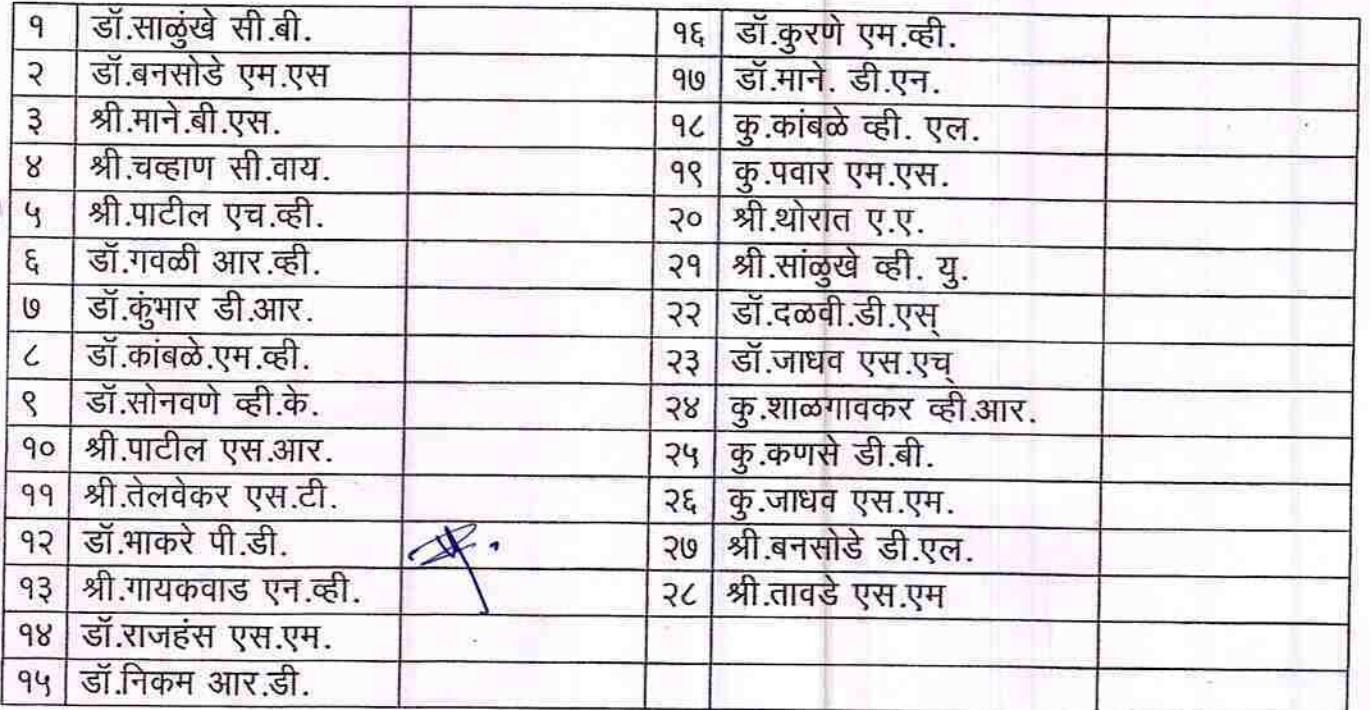 १ डॉ.साळुंखे सी.बी. १६ डॉ.कुरणे एम.व्ही.
२ डॉ.बनसोडे एम.एस १७ डॉ.माने. डी.एन.
३ श्री.माने.बी.एस. १८ कु.कांबळे व्ही. एल.
४ श्री.चव्हाण सी.वाय. १९ कु.पवार एम.एस.
५ श्री.पाटील एच.व्ही. २० श्री.थोरात ए.ए.
६ डॉ.गवळी आर.व्ही. २१ श्री.सांळुखे व्ही. यु.
७ डॉ.कुंभार डी.आर. २२ डॉ.दळवी.डी.एस्
८ डॉ.कांबळे.एम.व्ही. २३ डॉ.जाधव एस.एच्
९ डॉ.सोनवणे व्ही.के. २४ कु.शाळगावकर व्ही.आर.
१० श्री.पाटील एस.आर. २५ कु.कणसे डी.बी.
११ श्री.तेलवेकर एस.टी. २६ कु.जाधव एस.एम.
१२ डॉ.भाकरे पी.डी. २७ श्री.बनसोडे डी.एल.
१३ श्री.गायकवाड एन.व्ही. २८ श्री.तावडे एस.एम
१४ डॉ.राजहंस एस.एम.
१५ डॉ.निकम आर.डी.